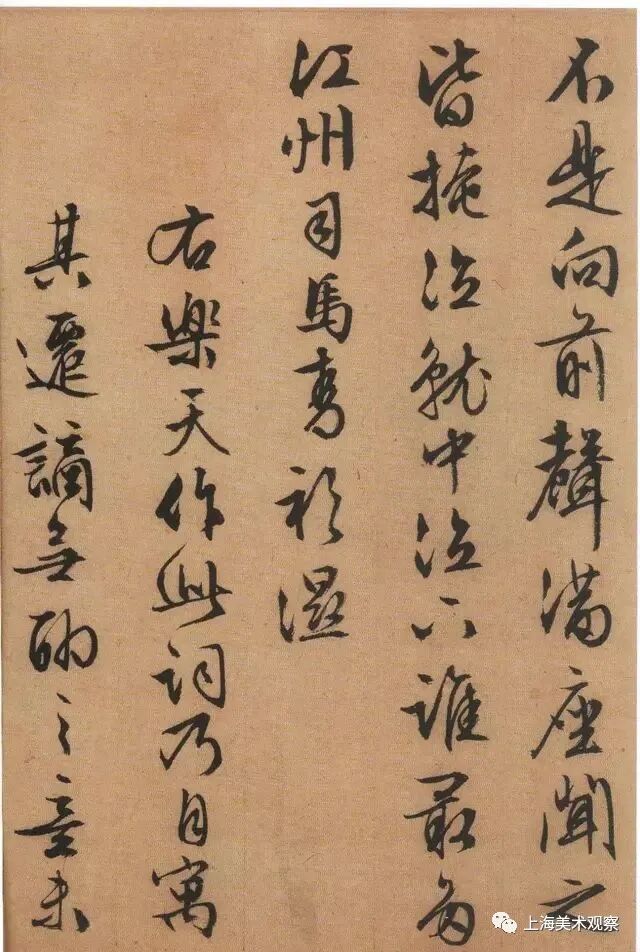 不是向前聲滿座聞之
皆掩泣就中泣下誰最多
江州司馬青衫濕
右樂天作此詞乃自寓
其遷謫無聊之意未
上海美术观察